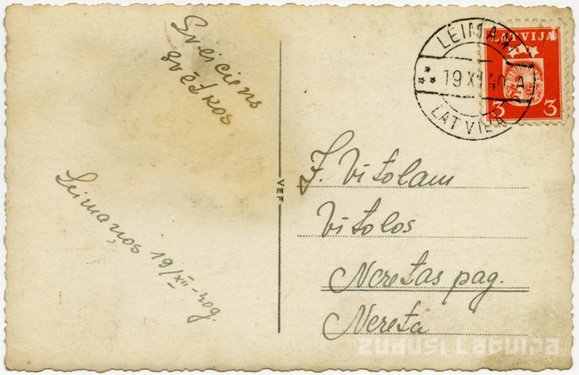 Sveiciens
svētkos
Leimaņos 19/XII-40g.
VEF
LEIMAŅI
19 XII 40 A
LATVIJA
LATVIJA
3 3
J. Vītolam
Vītolos
Neretas pag.
Nereta
ZUDUSI LATVIJA